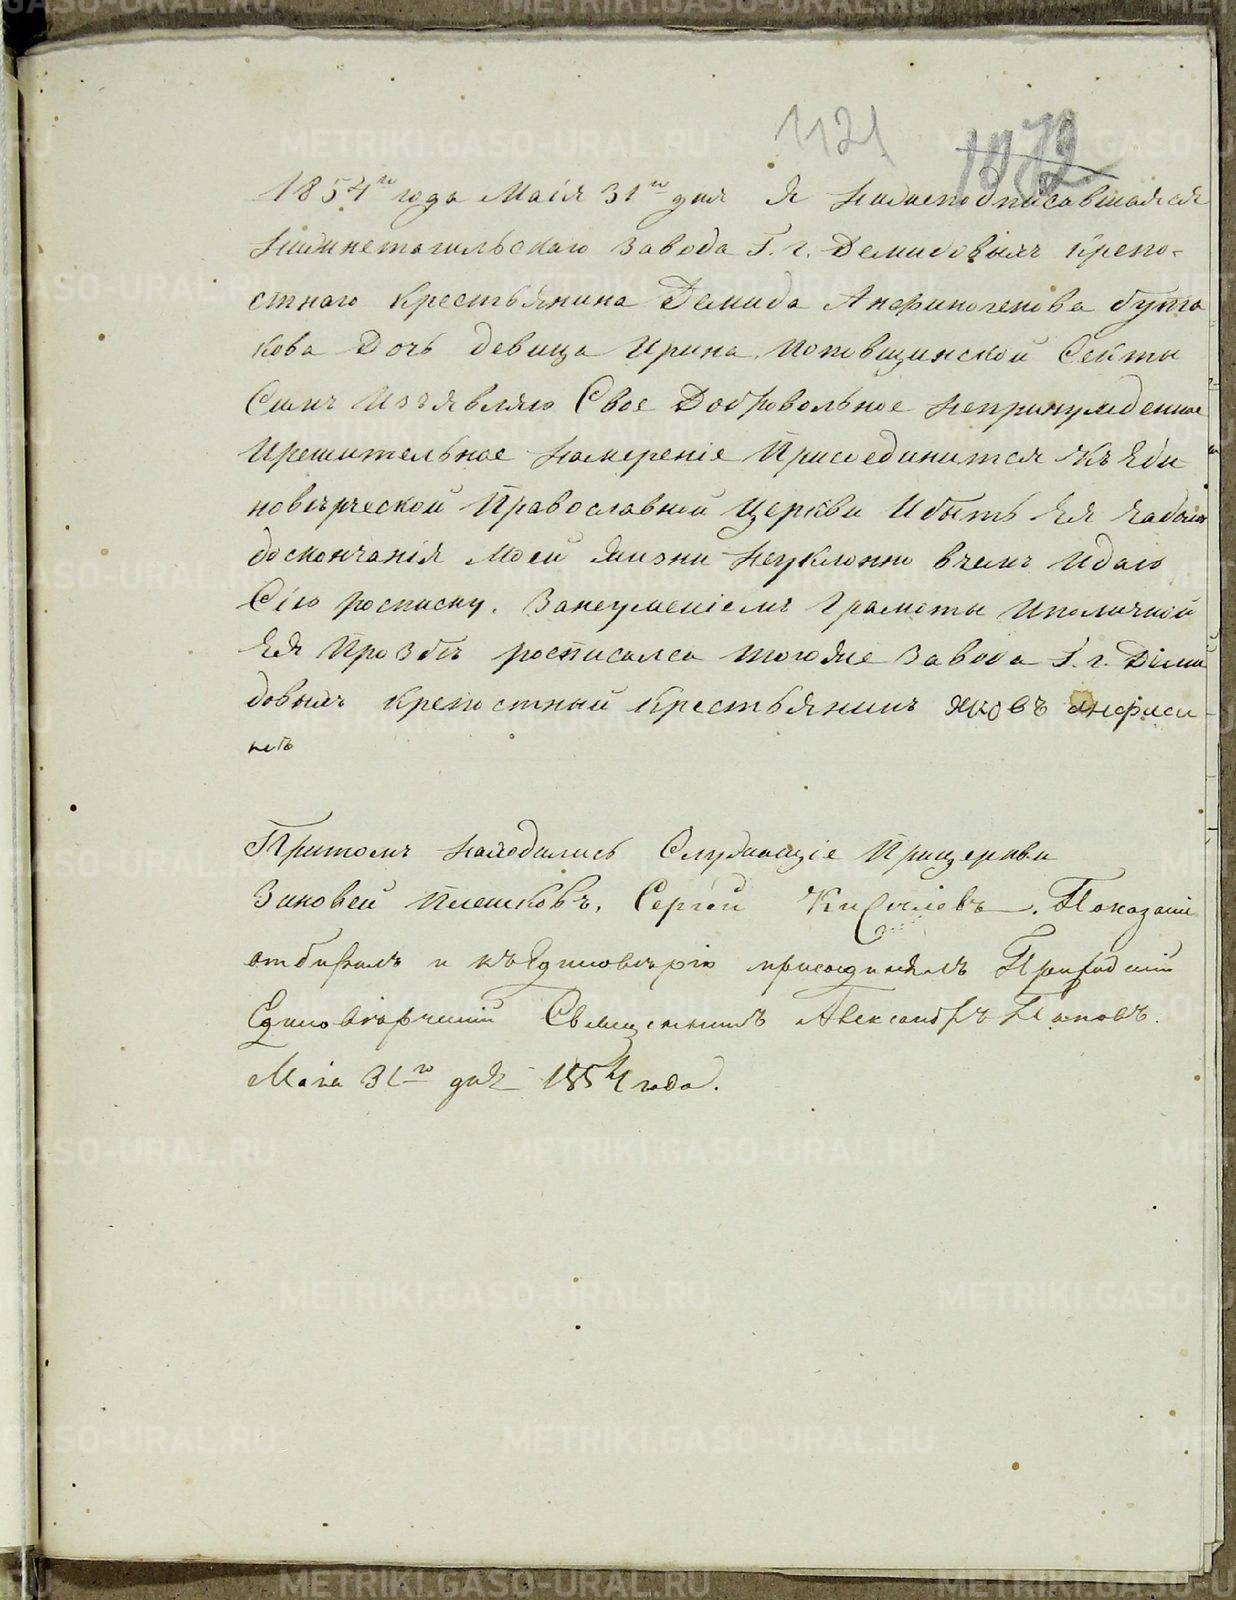 1121
1072
1854го года Маія 31го дня Я Нижеподписавшаяся
Нижнетагильскаго Завода Г. г. Демидовыхъ крепо-
стнаго Крестьянина Демида Анфиногенова бута
кова Дочь девица Ирина, Поповщинской Секты
Симъ Изъявляю Свое Добровольное Непринужденное
Ирешительное Намереніе Присоединится Къ Еди
новерческой Православной Церкви Ибыть Ея
доскончанія Моей Жизни Неуклонно вчемъ Идаю
Сію росписку. Занеуменіемъ Грамоты Иполичной
Ея Прозбе росписался тогоже Завода Г. г. Деми
довыхъ крепостный крестьянинъ яковъ
Притомъ находились Служащіе Прицеркви
Зиновей Плешковъ, Сергей Киселевъ. Показаніе
отбиралъ и къ Единоверію присоединялъ Приходскій
Единоверческій Священникъ Александръ Поповъ.
Маія 31го дня 1854 года.
METRIKI.GASO-URAL.RU